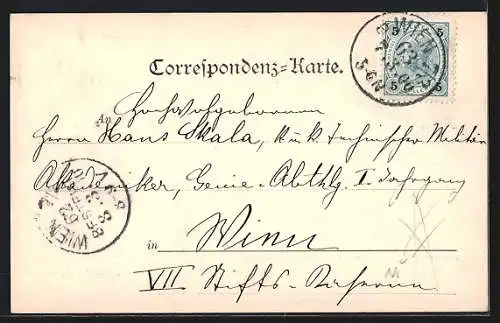 WIEN
5 5
5 5
Correspondenz=Karte.
An Hochwohlgeboren
Herrn Hans Skala, k. u. k. technischer Militär
Akademiker, Genie-Abthlg. I. Jahrgang
in Wien
VII Stifts-Caserne
WIEN